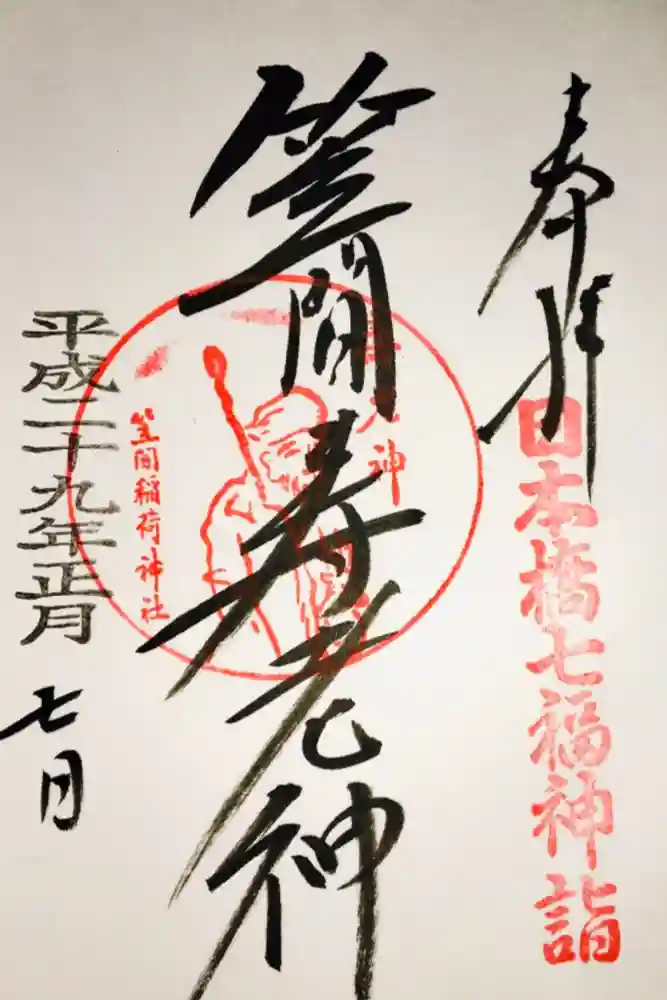 奉拝
日本橋七福神詣
笠間寿老神
神
笠間稲荷神社
平成二十九年正月
七日